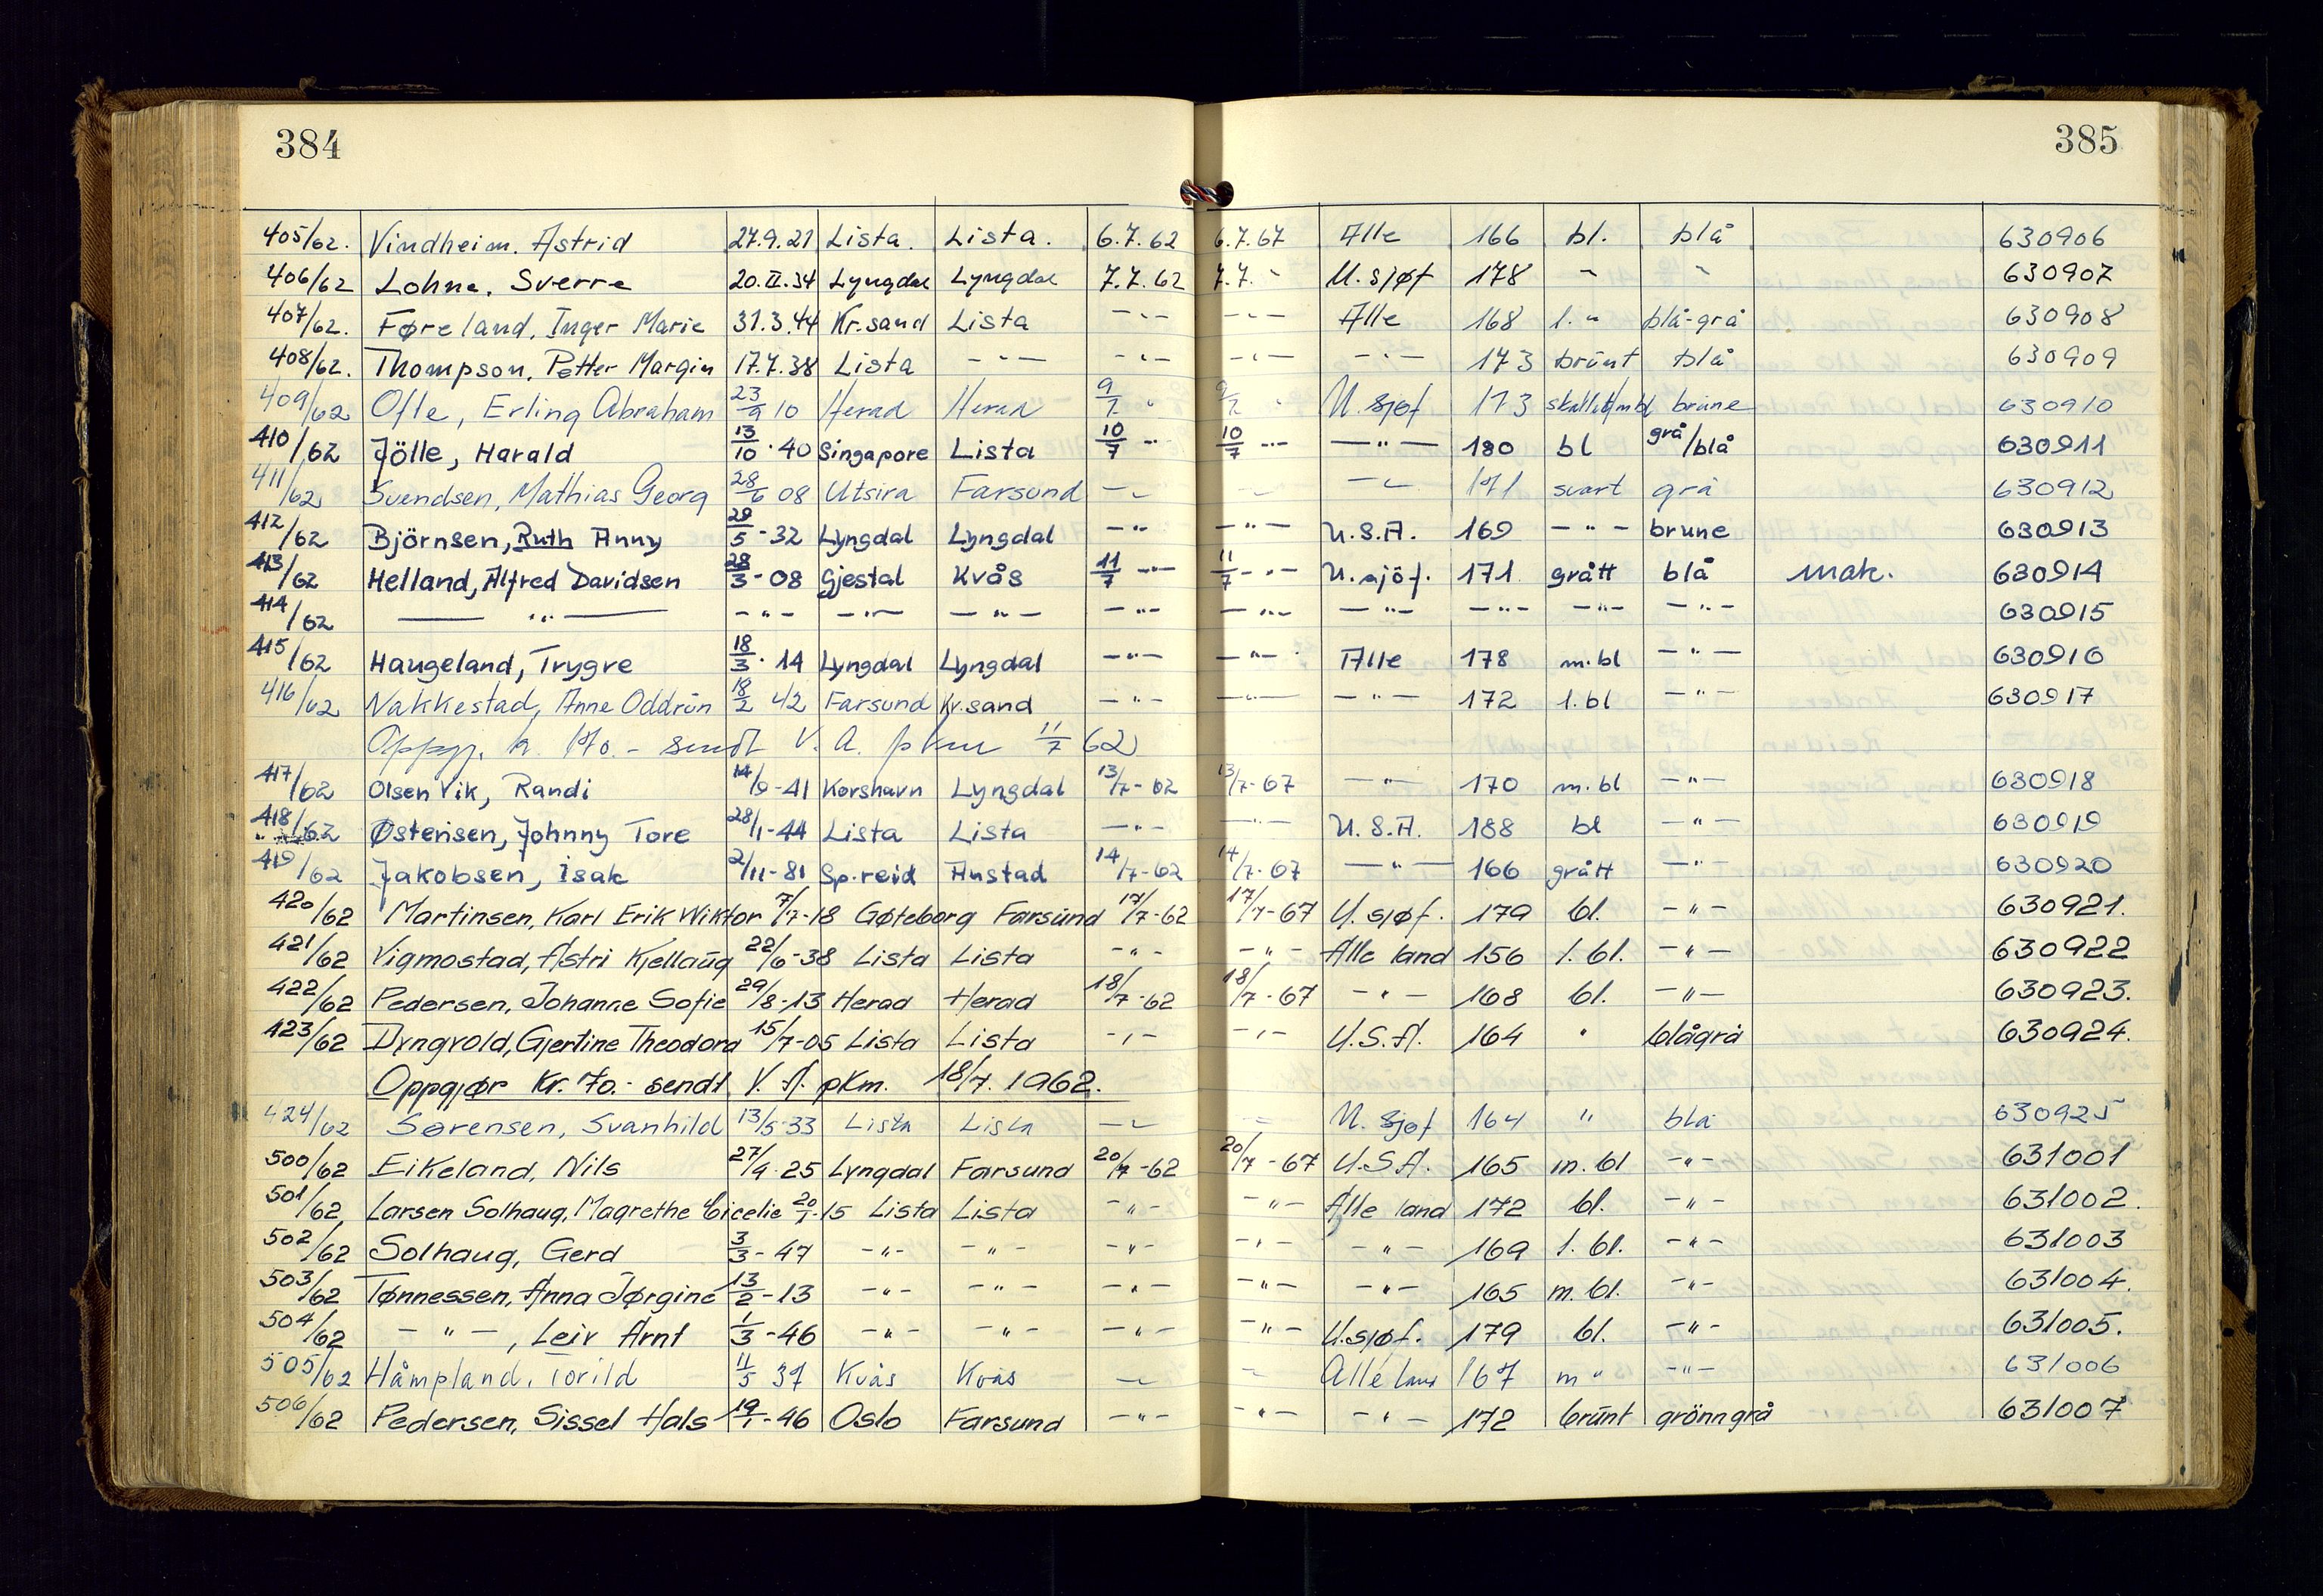 384
385
405/62. Vindheim. Astrid 27.9.21 Lista. Lista. 6.7.62 6.7.67 Alle 166 bl. blå 630906
406/62 Lohne. Sverre 20.II.34 Lyngdal Lyngdal 7.7.62 7.7. " U.sjøf 178 " " 630907
407/62. Føreland, Inger Marie 31.3.44 Kr.sand Lista -"- -"- Alle 168 l. " blå-grå 630908
408/62. Thompson, Petter Margin 17.7.38 Lista -"- -"- -"- -"- 173 brunt blå 630909
409/62 Ofte, Erling Abraham 23/9 10 Herad Herad 9/7 " 9/7 " U. sjøf 173 skallet/mbl brune 630910
410/62 Jölle, Harald 13/10 · 40 Singapore Lista 10/7 -"- 10/7 -"- -"- 180 bl grå/blå 630911
411/62 Svendsen, Mathias Georg 28/6 08 Utsira Farsund -"- -"- -"- 171 svart grå 630912
412/62 Björnsen, Ruth Anny 29/5 - 32 Lyngdal Lyngdal -"- -"- U.S.A. 169 -"- brune 630913
413/62 Helland, Alfred Davidsen 28/3 - 08 Gjestal Kvås 11/7 -"- 11/7 -"- U.sjöf. 171 grått blå mak. 630914
414/62 -"- -"- -"- -"- -"- -"- -"- -"- -"- -"- 630915
415/62 Haugeland, Trygve 18/3 · 14 Lyngdal Lyngdal -"- -"- Alle 178 m.bl -"- 630916
416/62 Nakkestad, Anne Oddrun 18/2 42 Farsund Kr.sand -"- -"- -"- 172 l.bl -"- 630917
Oppgj. kr. 170.- sendt V. A. pkm 11/7 62
417/62 Olsen Vik, Randi 14/9-41 Korshavn Lyngdal 13/7-62 13/7-67 -"- 170 m.bl -"- 630918
418/62 Østensen, Johnny Tore 28/1-44 Lista Lista -"- -"- U.S.A. 188 bl -"- 630919
419/62 Jakobsen, Isak 2/11-81 Sp.reid Austad 14/7-62 14/7-67 -"- 166 grått -"- 630920
420/62 Martinsen, Karl Erik Wiktor 7/7-18 Gøteborg Farsund 17/7-62 17/7-67 U.sjøf. 179 bl. -"- 630921.
421/62 Vigmostad, Astri Kjellaug 22/6-38 Lista Lista -"- -"- Alle land 156 l. bl. -"- 630922
422/62 Pedersen, Johanne Sofie 29/8-13 Herad Herad 18/7-62 18/7-67 -"- 168 bl. -"- 630923.
423/62 Dyngvold, Gjertine Theodora 15/7-05 Lista Lista -"- -"- U.S.A. 164 " blågrå 630924.
Oppgjør kr. 70.- sendt V. A. pkm. 18/7. 1962.
424/62 Sørensen, Svanhild 13/5-33 Lista Lista -"- -"- U. Sjøf 164 " blå 630925
500/62 Eikeland, Nils 27/4-25 Lyngdal Farsund 20/7-62 20/7-67 U.S.A. 165 m. bl -"- 631001
501/62 Larsen Solhaug, Magrethe Cicelie 20/1-15 Lista Lista -"- -"- Alle land 172 bl. -"- 631002.
502/62 Solhaug, Gerd 3/3-47 -"- -"- -"- -"- -"- 169 l. bl. -"- 631003
503/62 Tønnessen, Anna Jørgine 13/2-13 -"- -"- -"- -"- -"- 165 m. bl. -"- 631004.
504/62 -"-, Leiv Arnt 1/3-46 -"- -"- -"- -"- U.sjøf. 179 bl. -"- 631005.
505/62 Håmpland, Torild 11/5 37 Kvås Kvås -"- -"- Alle land 167 m " -"- 631006
506/62 Pedersen, Sissel Hals 19/1-46 Oslo Farsund -"- -"- -"- 172 brunt grönngrå 631007